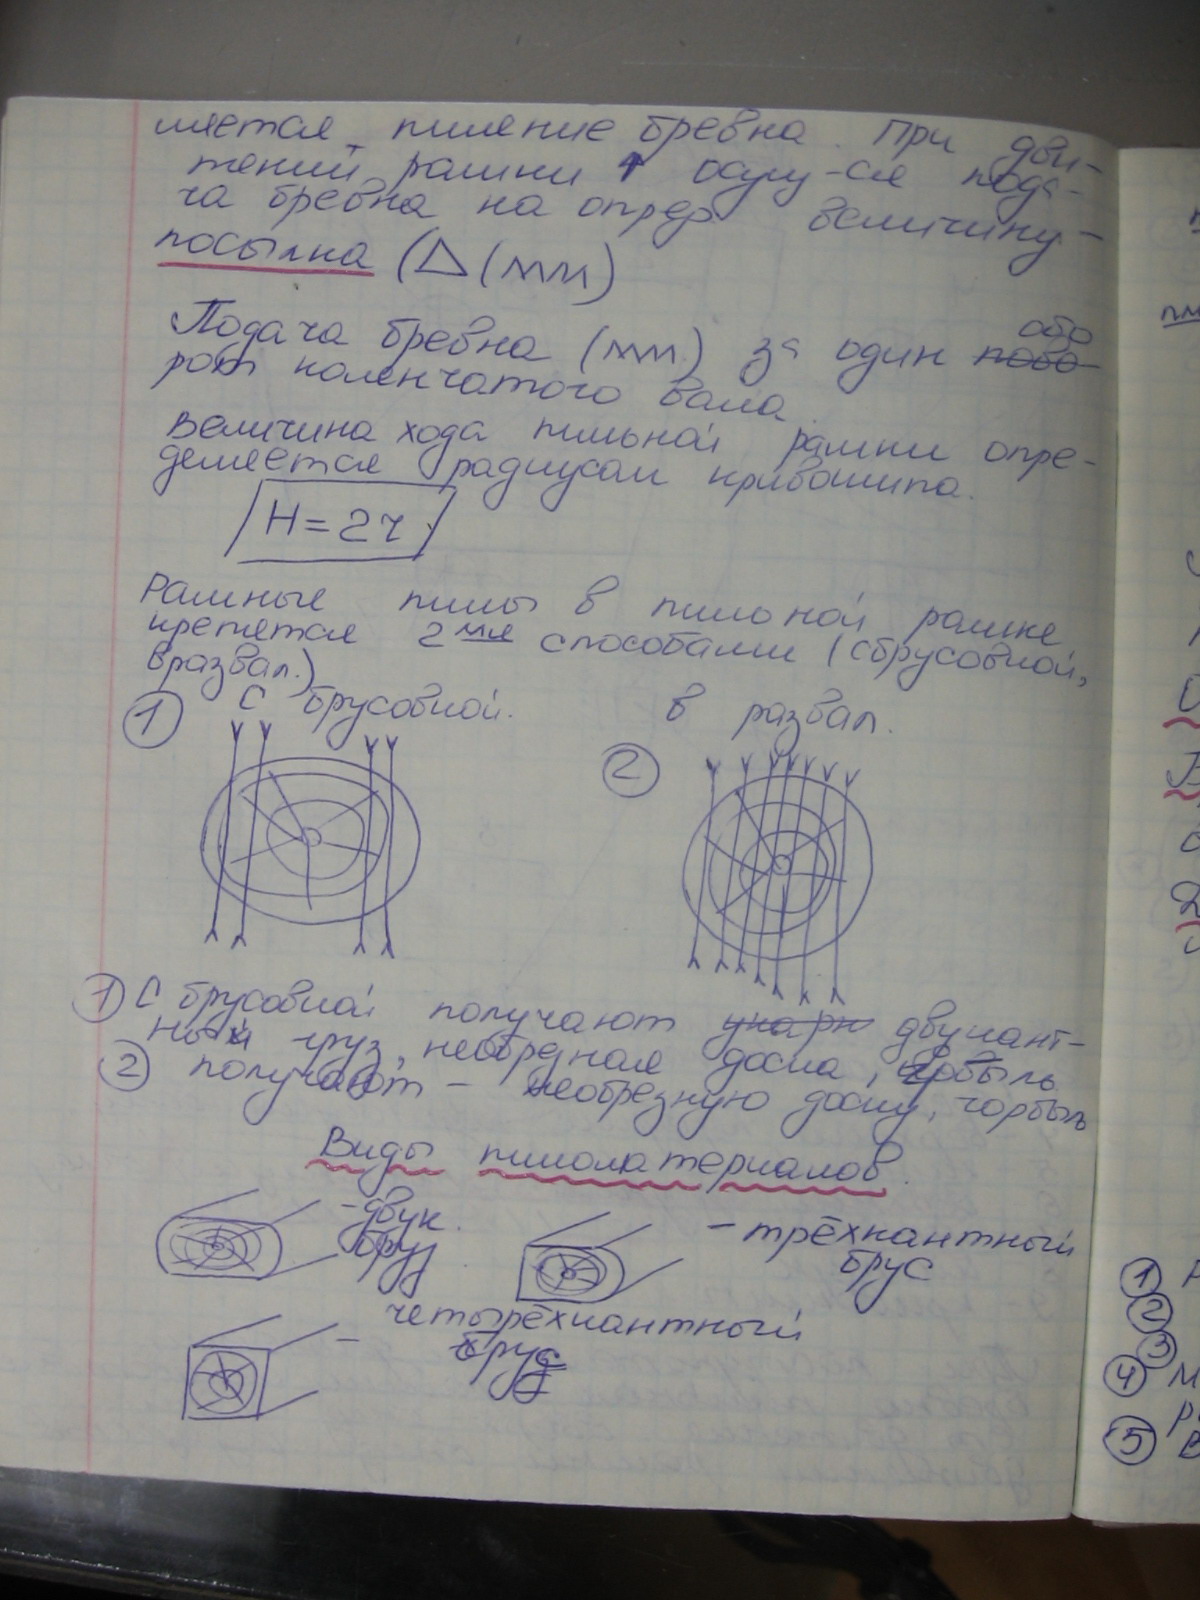 ляется пиление бревна. При дви-
жении рамки ↑ осущ-ся пода-
ча бревна на опред. величину -
посылка (Δ (мм)
Подача бревна (мм) за один обо
рот коленчатого вала.
Величина хода пильной рамки опре-
деляется радиусом кривошипа.
H = 2r
Рамные пилы в пильной рамке
крепятся 2мя способами (с брусовкой,
вразвал.)
① С брусовкой. в развал.
②
① С брусовкой получают двукант-
ный груз, необрезная доска, горбыль
② получают - необрезную доску, горбыль
Виды пиломатериалов.
- двук.
бруз
- трёхкантный
брус
- четырёхкантный
брус
①
②
③
④ м
⑤ в